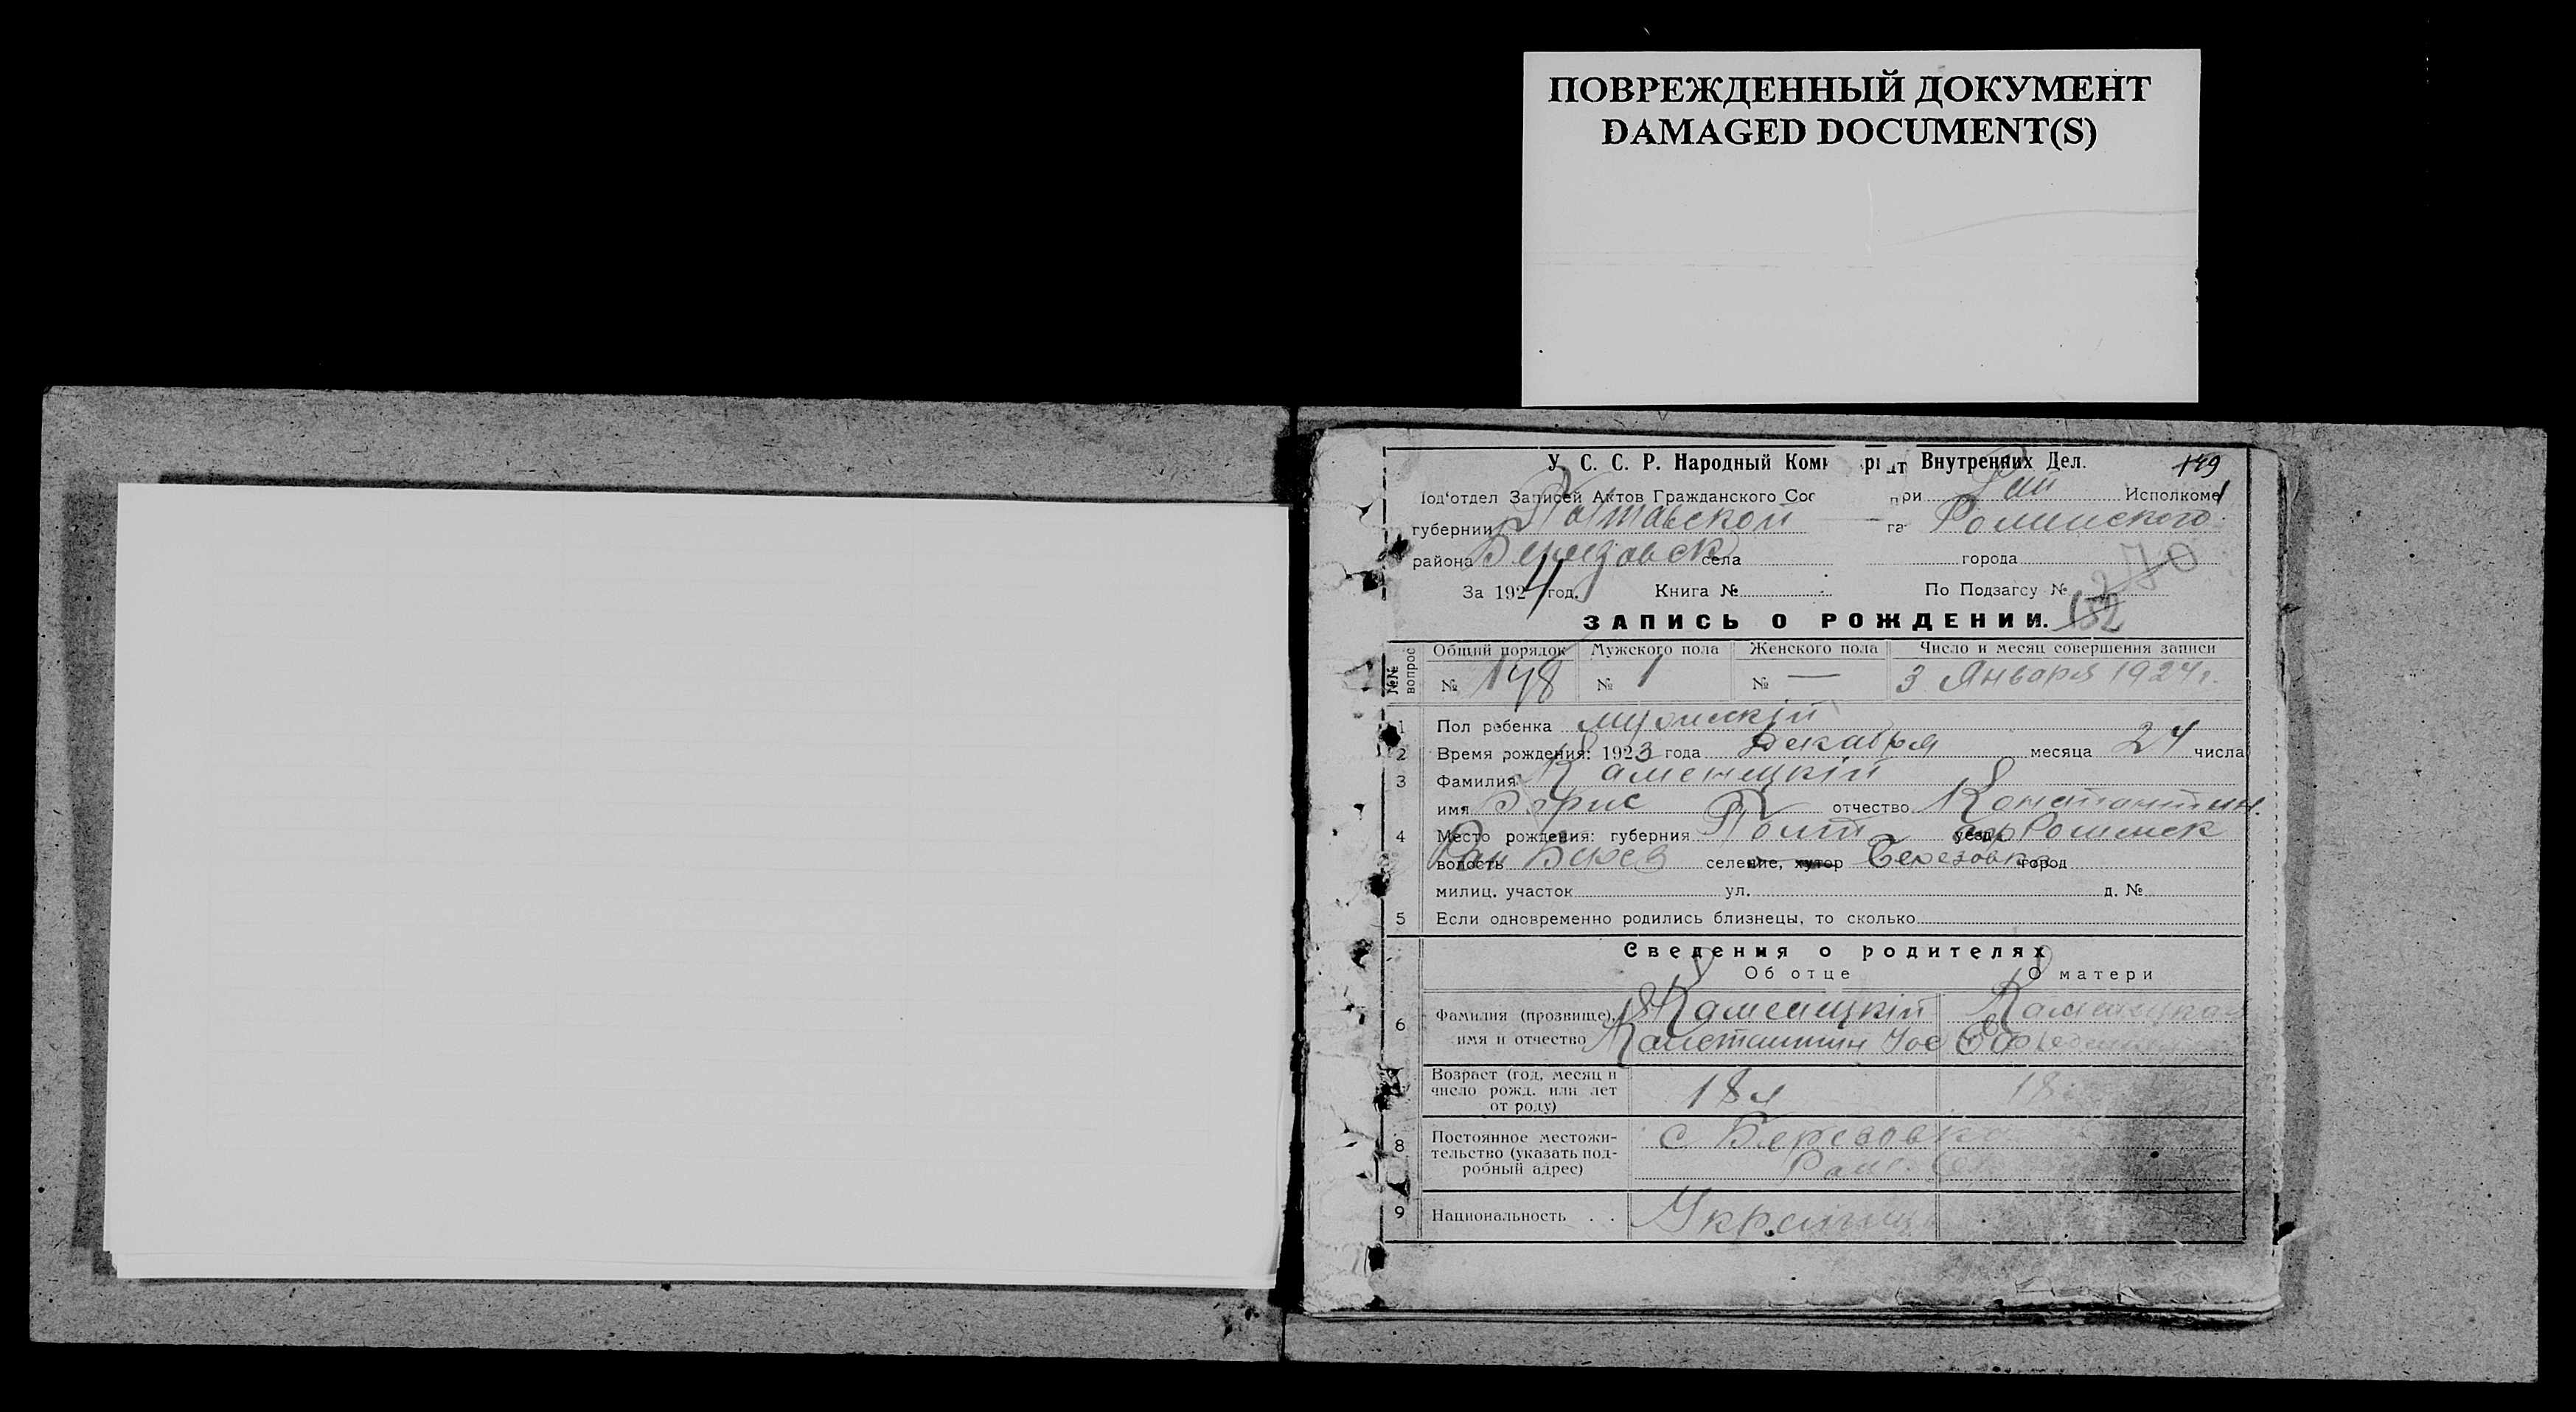 ПОВРЕЖДЕННЫЙ ДОКУМЕНТ
DAMAGED DOCUMENT(S)
У. С. С. Р. Народный Ком Внутренних Дел. 149
Под'отдел Записей Актов Гражданского при Рай Исполкоме
губернии Полтавской Роменского
района Березовск села города
За 1924 год. Книга № По Подзагсу № 270
ЗАПИСЬ О РОЖДЕНИИ. 152
№№ вопрос Общий порядок Мужского пола Женского пола Число и месяц совершения записи
№ 148 № 1 № — 3 Января 1924 г.
1 Пол ребенка мужскій
2 Время рождения: 1923 года Декабря месяца 24 числа
3 Фамилия Каменецкій
имя Борис отчество Константин.
4 Место рождения: губерния Полт уезд Роменск
волость селение, хутор Березовка город
милиц. участок ул. д. №
5 Если одновременно родились близнецы, то сколько
Сведения о родителях
Об отце О матери
6 Фамилия (прозвище), Каменецкій Каменецкая
имя и отчество Константин
Возраст (год, месяц и
число рожд. или лет 18 л 18
от роду)
8 Постоянное местожи- с Березовка
тельство (указать под-
робный адрес)
9 Национальность . . Украинц